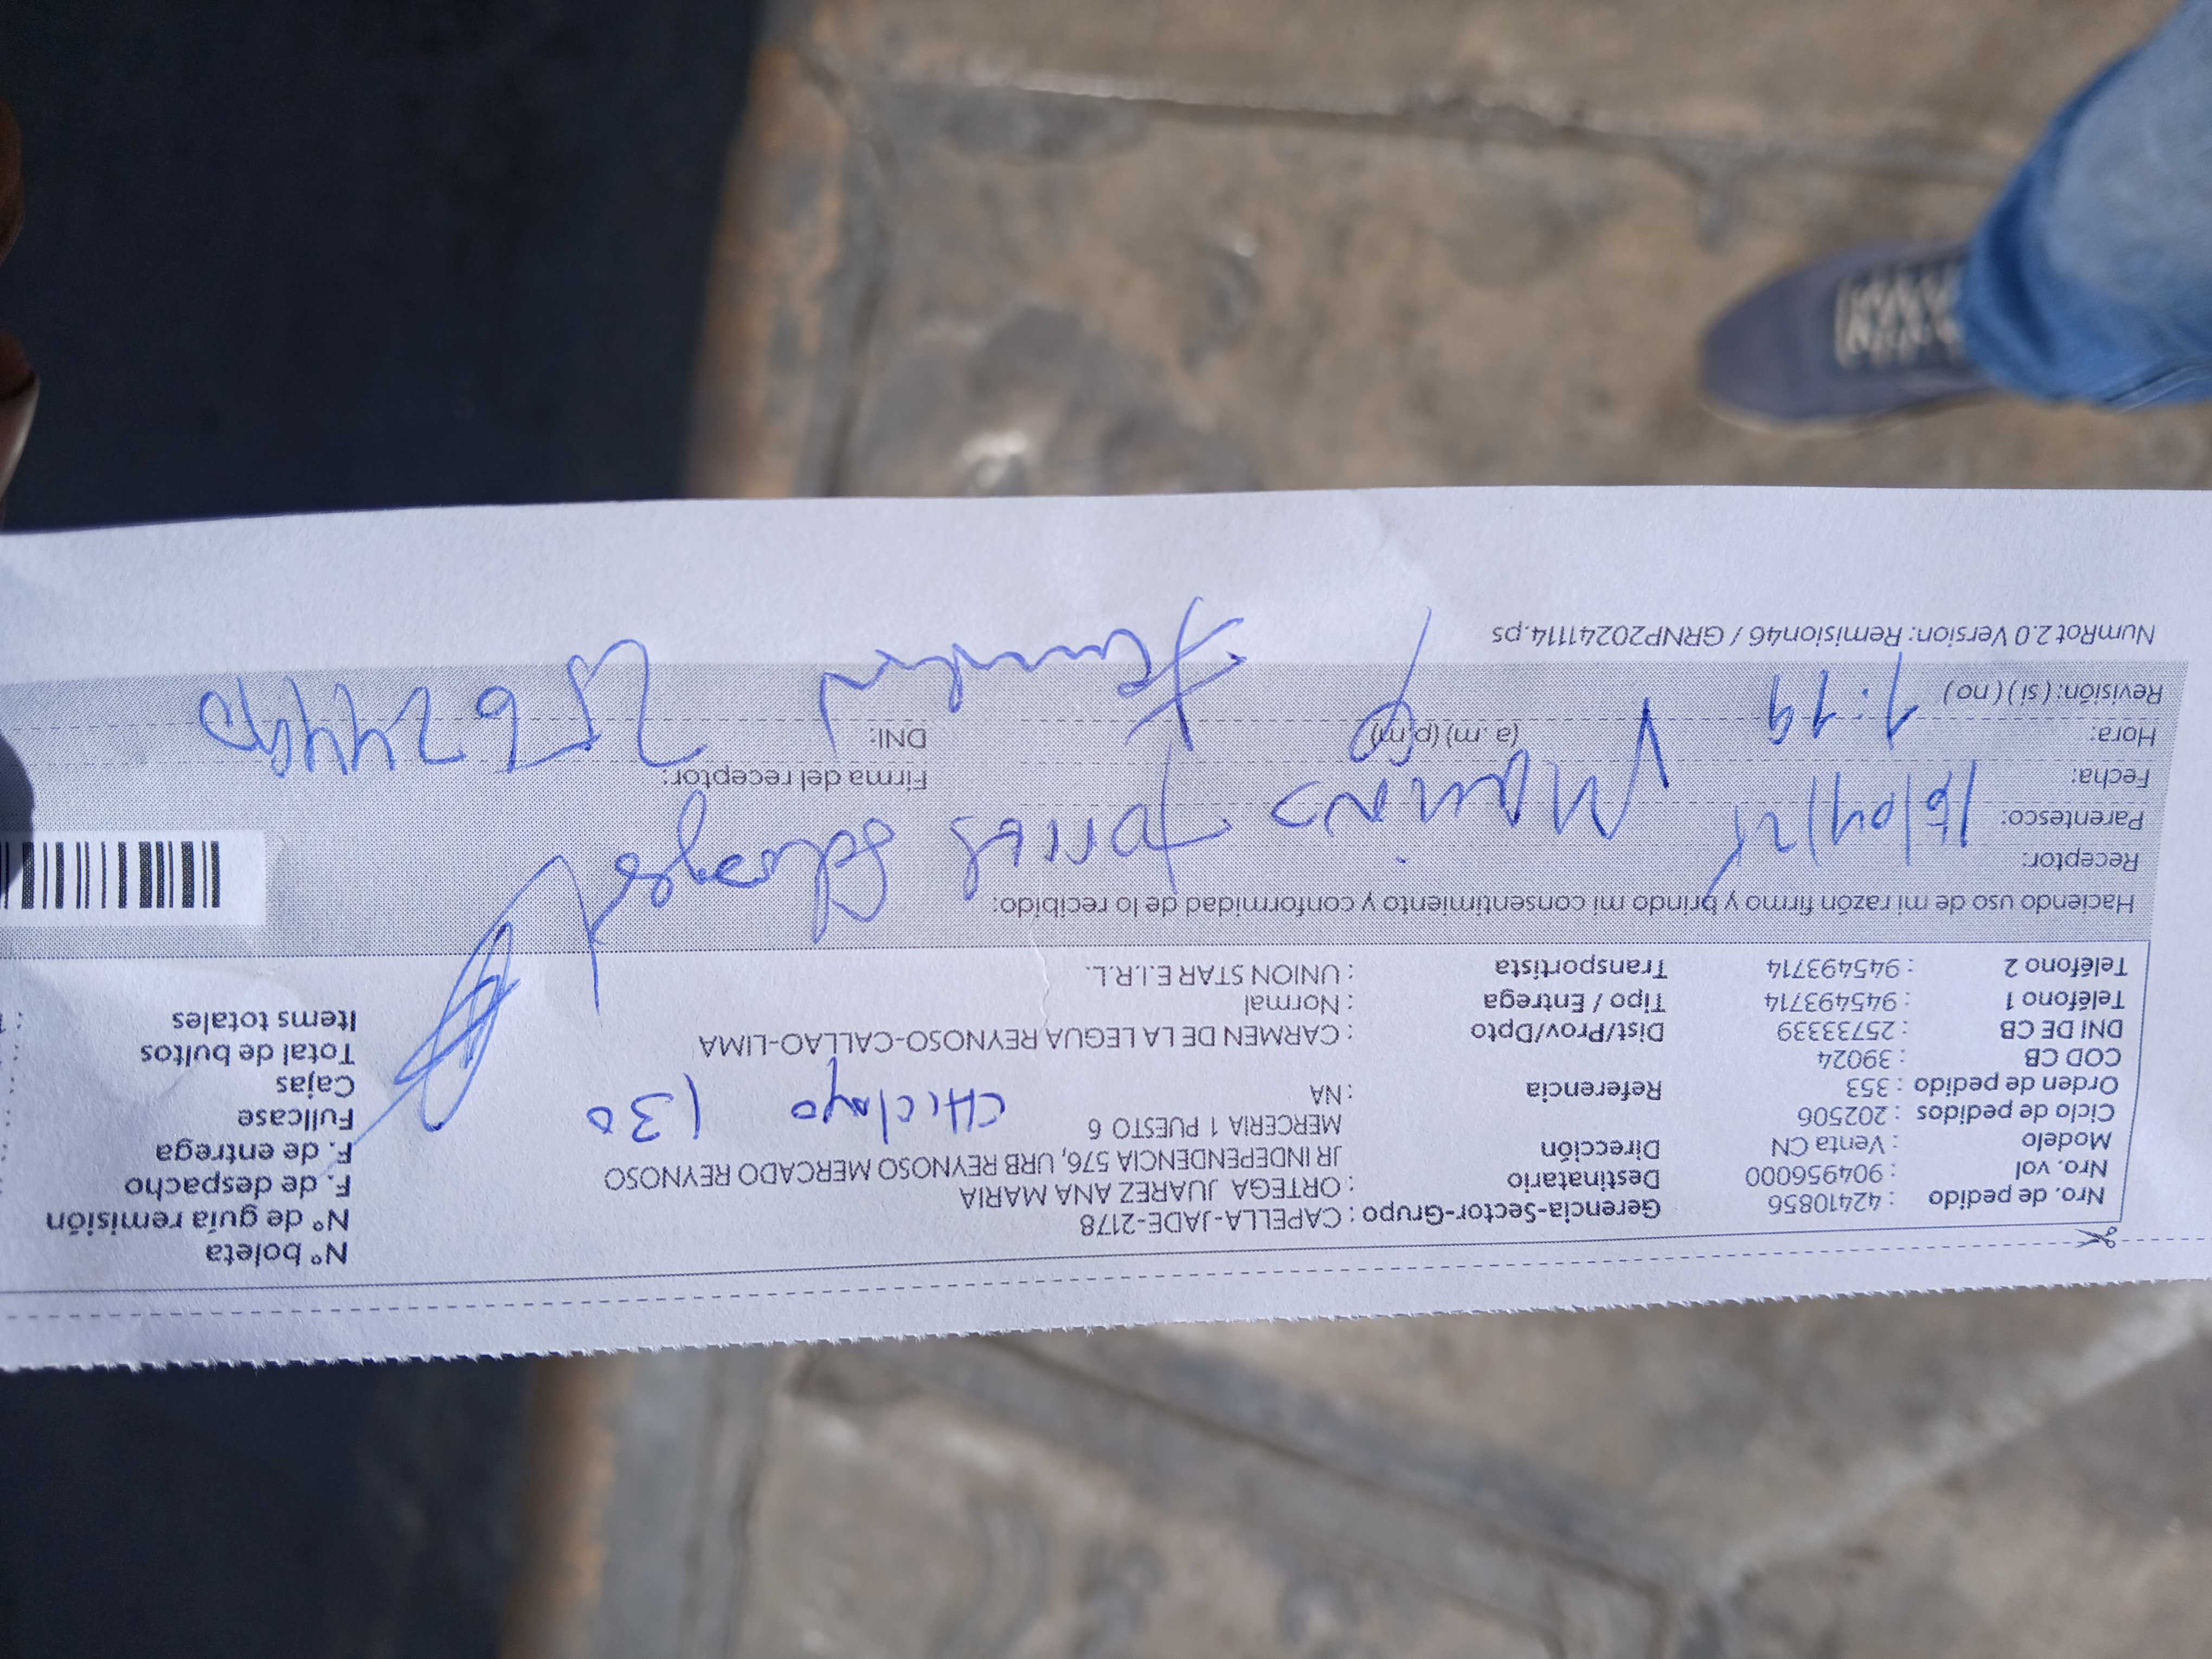 Nro. de pedido : 42410856 Gerencia-Sector-Grupo : CAPELLA-JADE-2178 N° boleta
Nro. vol : 904956000 Destinatario : ORTEGA JUAREZ ANA MARIA N° de guía remisión
Modelo : Venta CN Dirección JR INDEPENDENCIA 576, URB REYNOSO MERCADO REYNOSO F. de despacho
Ciclo de pedidos : 202506 MERCERIA 1 PUESTO 6 F. de entrega
Orden de pedido : 353 Referencia : NA CHiclayo 130 Fullcase
COD CB : 39024 Cajas
DNI DE CB : 25733339 Dist/Prov/Dpto : CARMEN DE LA LEGUA REYNOSO-CALLAO-LIMA Total de bultos
Teléfono 1 : 945493714 Tipo / Entrega : Normal Items totales
Teléfono 2 : 945493714 Transportista : UNION STAR E.I.R.L.
Haciendo uso de mi razón firmo y brindo mi consentimiento y conformidad de lo recibido:
Receptor:
Parentesco: 15/04/25 Torres
Fecha: Firma del receptor:
Hora: 1:19 (a.m) (p.m) DNI:
Revisión: (si) (no)
NumRot 2.0 Version: Remision46 / GRNP20241114.ps